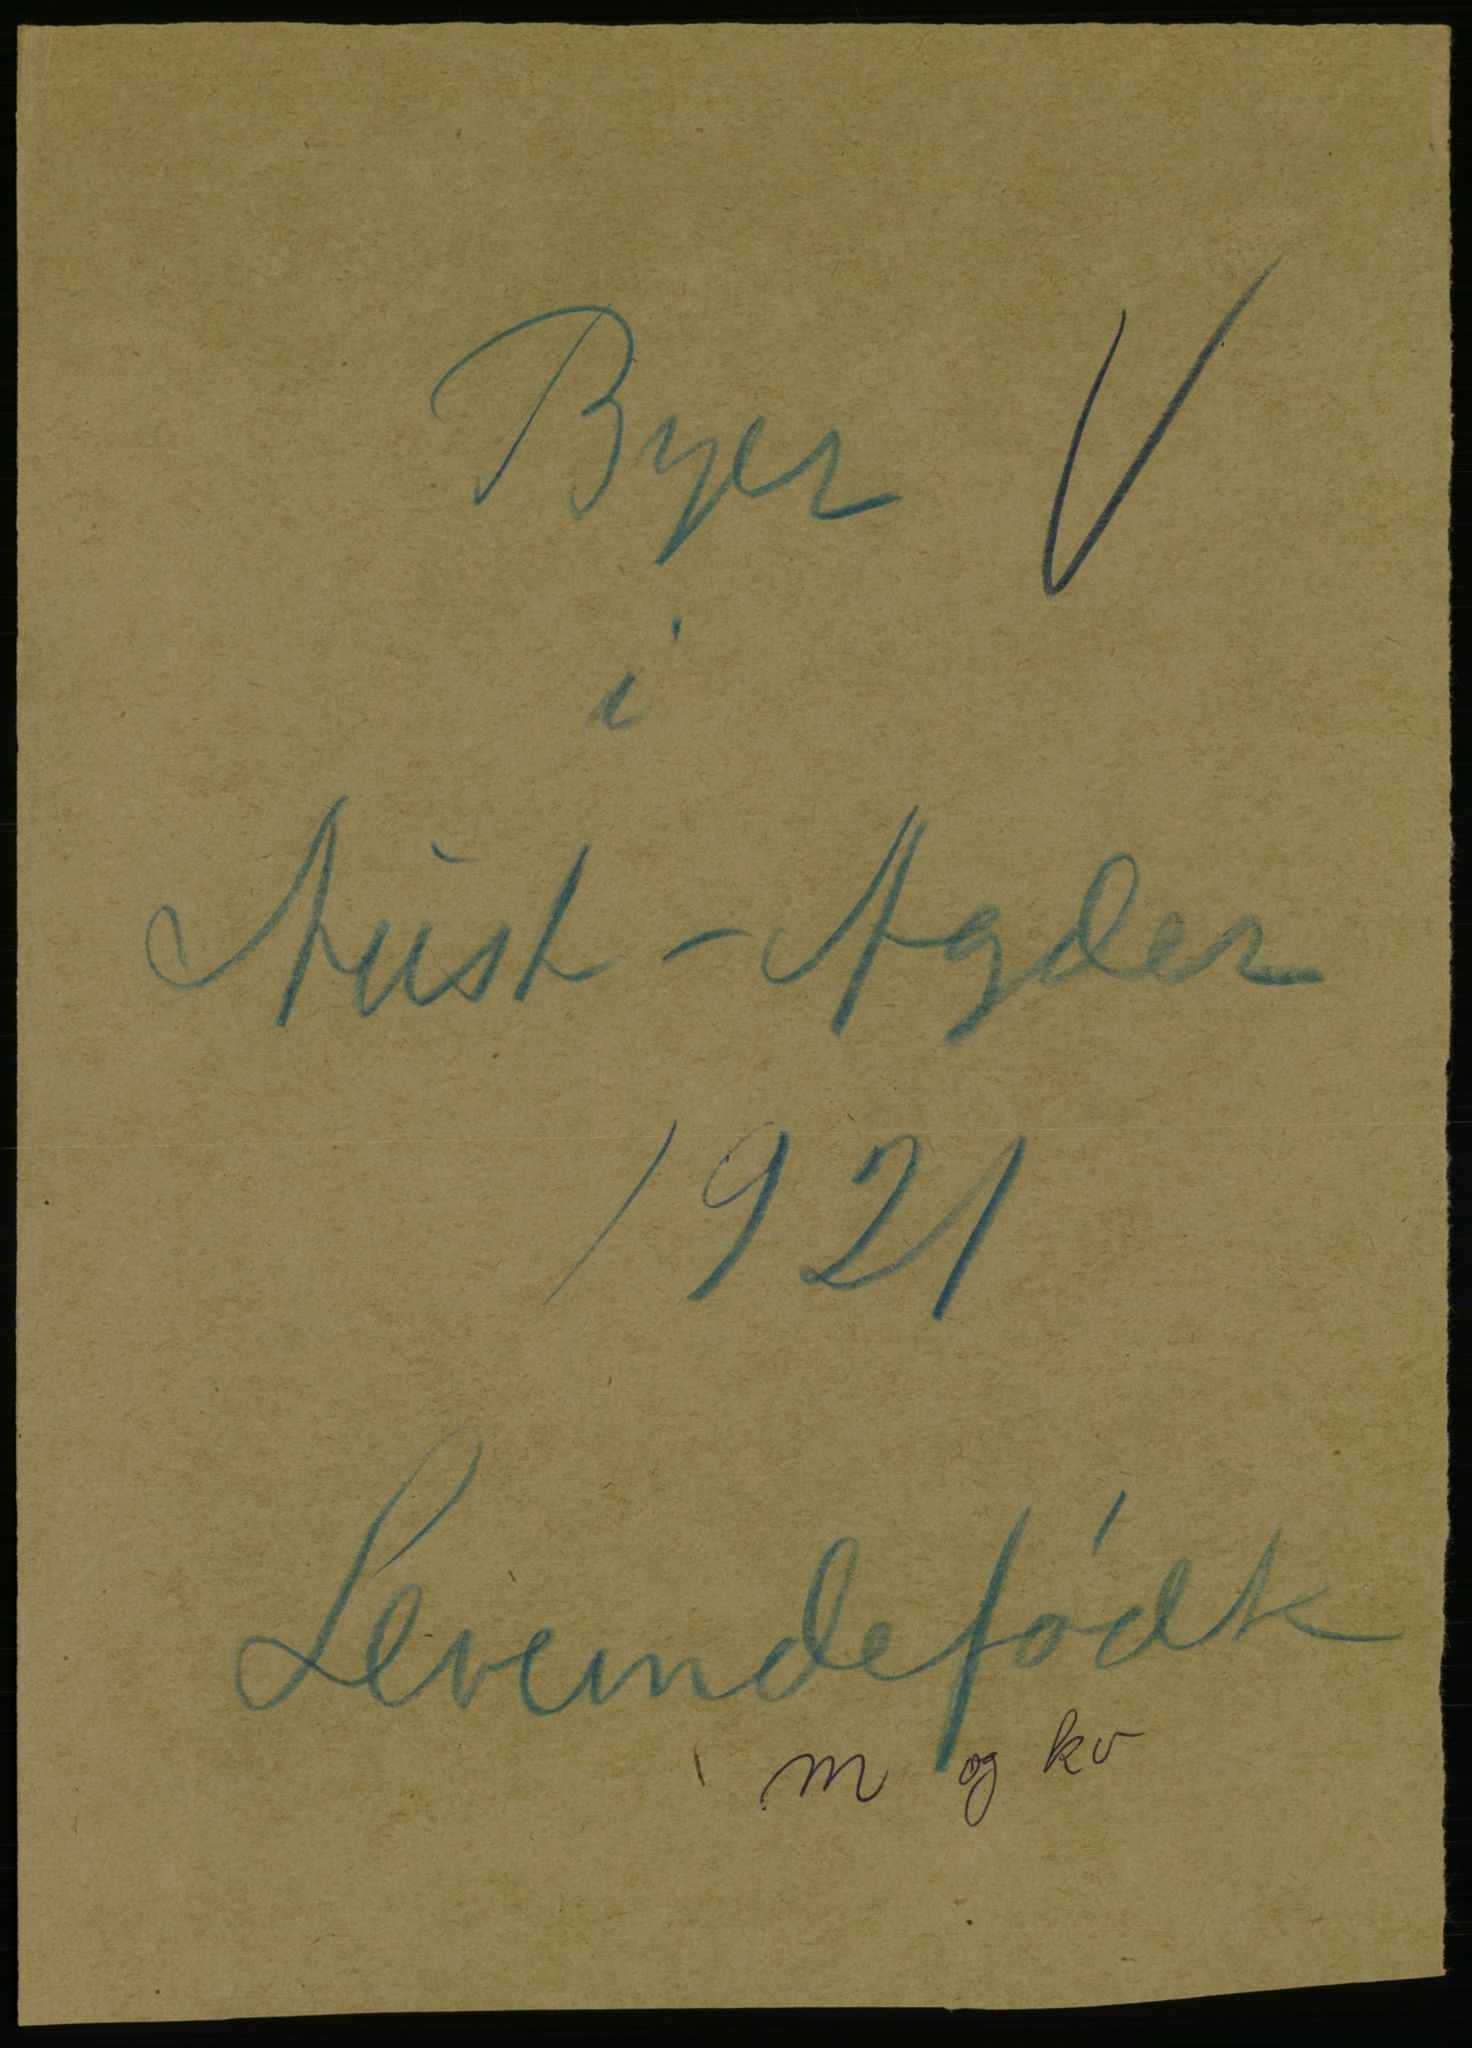 Byer V
i
Aust-Agder
1921
Levendefødt
m og kv